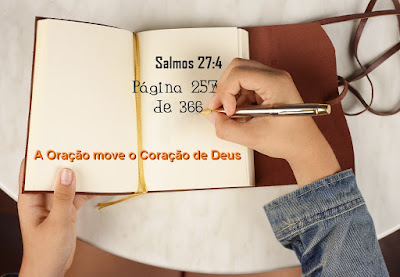 Salmos 27:4
Página 257
de 366
A Oração move o Coração de Deus